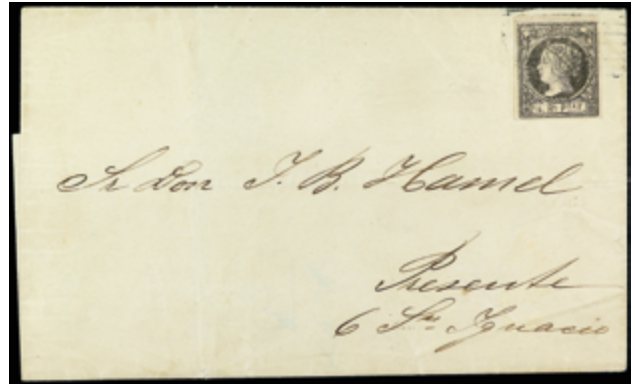 Sr Don J. B. Hamel
Presente
6 Sn. Ignacio